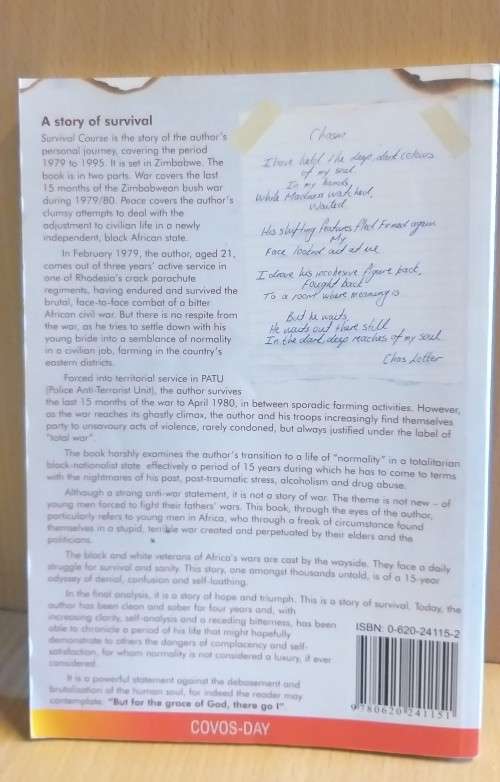 A story of survival
Survival Course is the story of the author's
personal journey, covering the period
1979 to 1995. It is set in Zimbabwe. The
book is in two parts. War covers the last
15 months of the Zimbabwean bush war
during 1979/80. Peace covers the author's
clumsy attempts to deal with the
adjustment to civilian life in a newly
independent, black African state.
In February 1979, the author, aged 21,
comes out of three years' active service in
one of Rhodesia's crack parachute
regiments, having endured and survived the
brutal, face-to-face combat of a bitter
African civil war. But there is no respite from
the war, as he tries to settle down with his
young bride into a semblance of normality
in a civilian job, farming in the country's
eastern districts.
Forced into territorial service in PATU
(Police Anti-Terrorist Unit), the author survives
the last 15 months of the war to April 1980, in between sporadic farming activities. However,
as the war reaches its ghastly climax, the author and his troops increasingly find themselves
party to unsavoury acts of violence, rarely condoned, but always justified under the label of
"total war".
The book harshly examines the author's transition to a life of "normality" in a totalitarian
black-nationalist state effectively a period of 15 years during which he has to come to terms
with the nightmares of his past, post-traumatic stress, alcoholism and drug abuse.
Although a strong anti-war statement, it is not a story of war. The theme is not new – of
young men forced to fight their fathers' wars. This book, through the eyes of the author,
particularly refers to young men in Africa, who through a freak of circumstance found
themselves in a stupid, terrible war created and perpetuated by their elders and the
politicians.
The black and white veterans of Africa's wars are cast by the wayside. They face a daily
struggle for survival and sanity. This story, one amongst thousands untold, is of a 15-year
odyssey of denial, confusion and self-loathing.
In the final analysis, it is a story of hope and triumph. This is a story of survival. Today, the
author has been clean and sober for four years and, with
increasing clarity, self-analysis and a receding bitterness, has been
able to chronicle a period of his life that might hopefully
demonstrate to others the dangers of complacency and self-
satisfaction, for whom normality is not considered a luxury, if ever
considered.
It is a powerful statement against the debasement and
brutalisation of the human soul, for indeed the reader may
contemplate: "But for the grace of God, there go I"
Chasm
I have held the deep, dark colours
of my soul
In my hands,
While Madness watched,
Waited
His shifting features
My
Face looked out at me
I drove his incohesive figure back,
Fought back
To a room where morning is
But he waits,
He waits out there still
In the dark, deep reaches of my soul
Chas Lotter
ISBN: 0-620-24115-2
9 780620 241151
COVOS-DAY